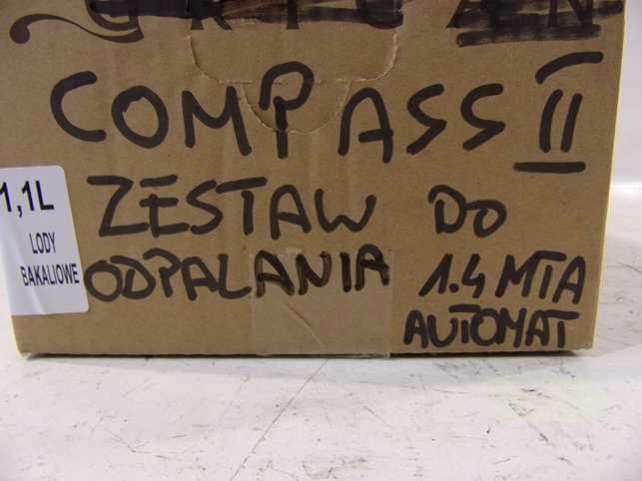 COMPASS II
ZESTAW DO
ODPALANIA 1.4 MTA
AUTOMAT
1,1L
LODY
BAKALIOWE